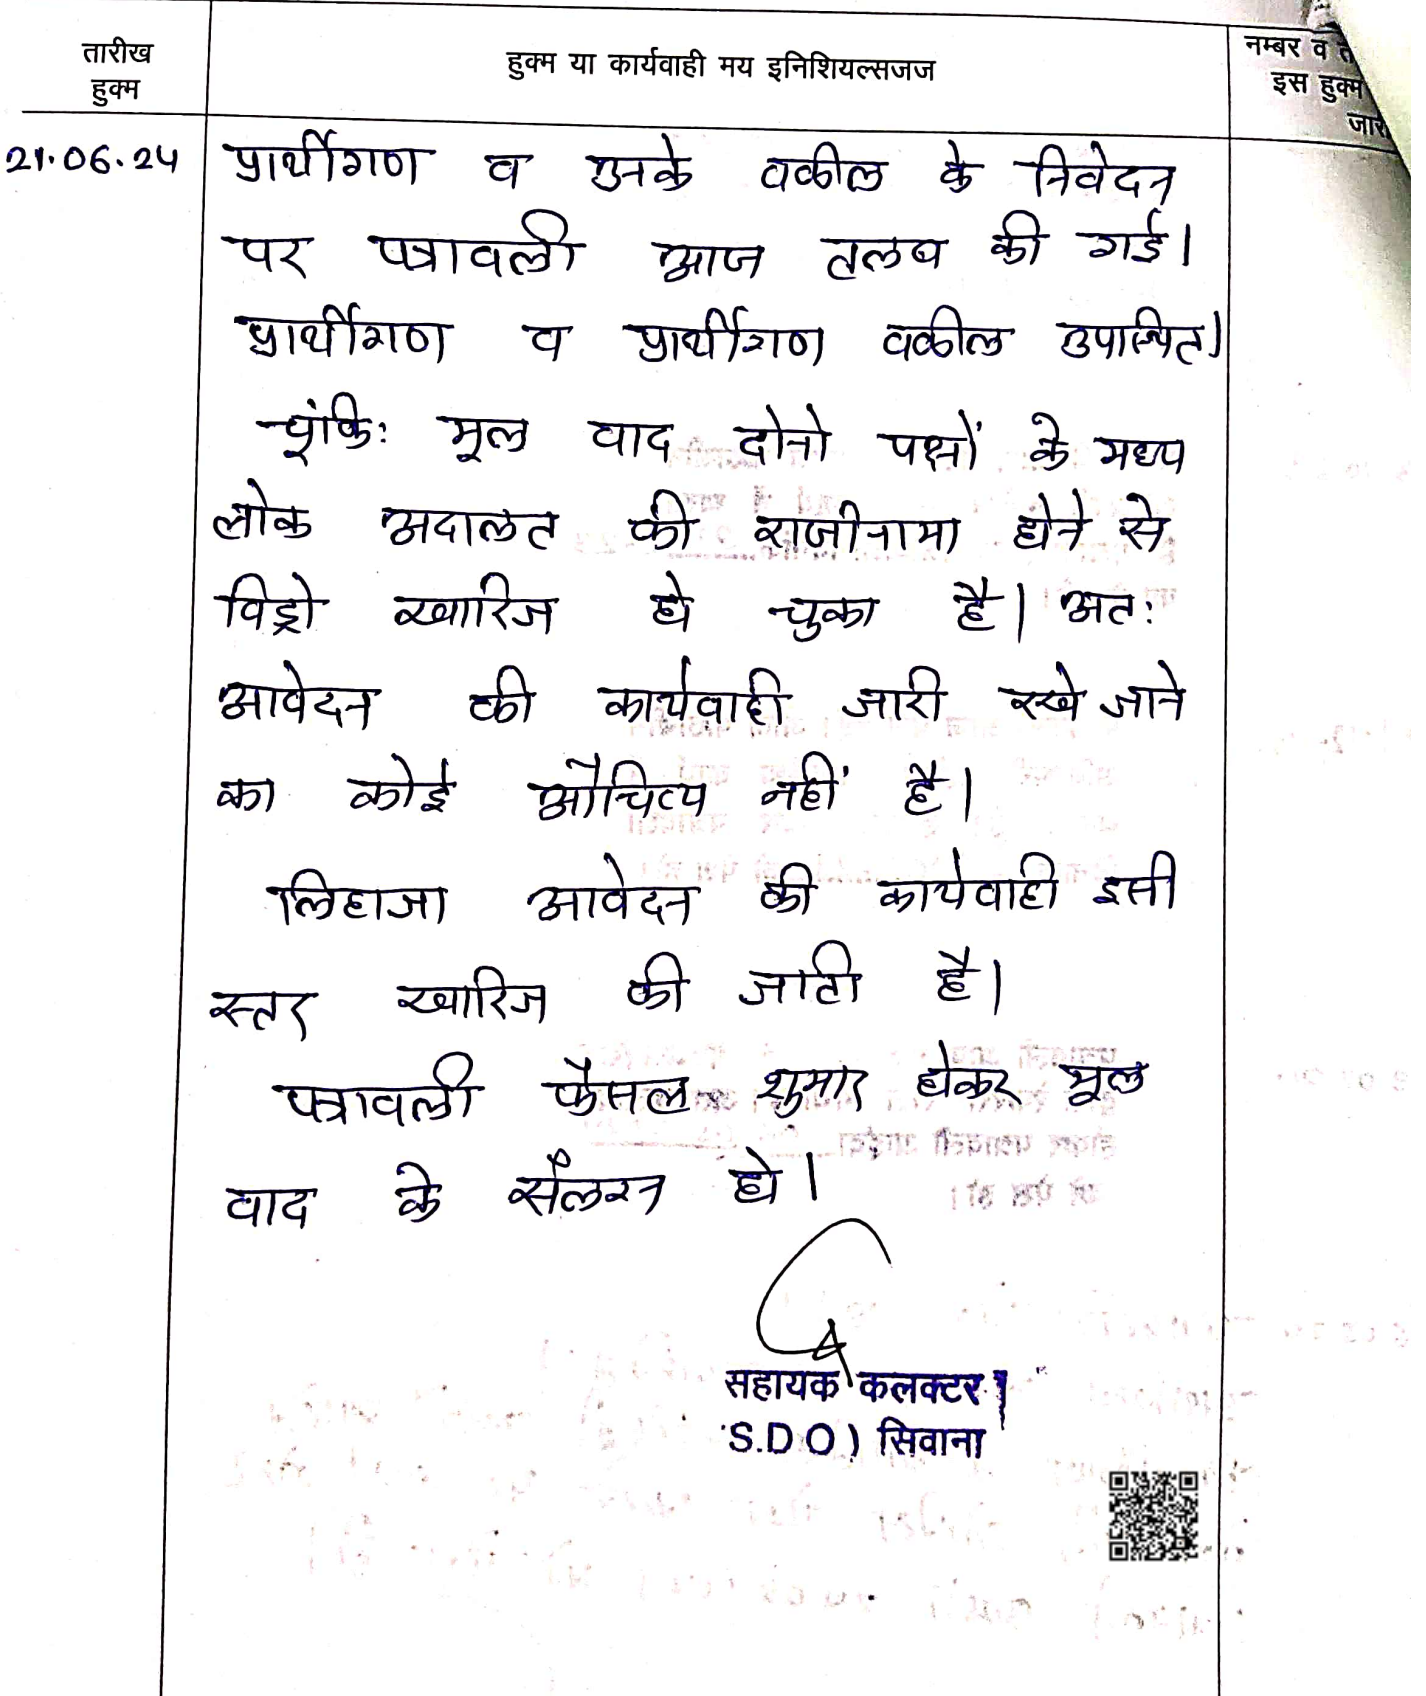 तारीख
हुक्म
हुक्म या कार्यवाही मय इनिशियल्सजज
नम्बर व
इस हुक्म
21.06.24 प्रार्थीगण व उनके वकील के निवेदन
पर पत्रावली आज तलब की गई।
प्रार्थीगण व प्रार्थीगण वकील उपस्थित।
चूंकि: मूल वाद दोनो पक्षों के मध्य
लोक अदालत की राजीनामा होने से
विड्रो खारिज हो चुका है। अत:
आवेदन की कार्यवाही जारी रखे जाने
का कोई औचित्य नहीं है।
लिहाजा आवेदन की कार्यवाही इसी
स्तर खारिज की जाती है।
पत्रावली फैसल शुमार होकर मूल
वाद के सैलग्न हो।
सहायक कलक्टर
S.D.O) सिवाना